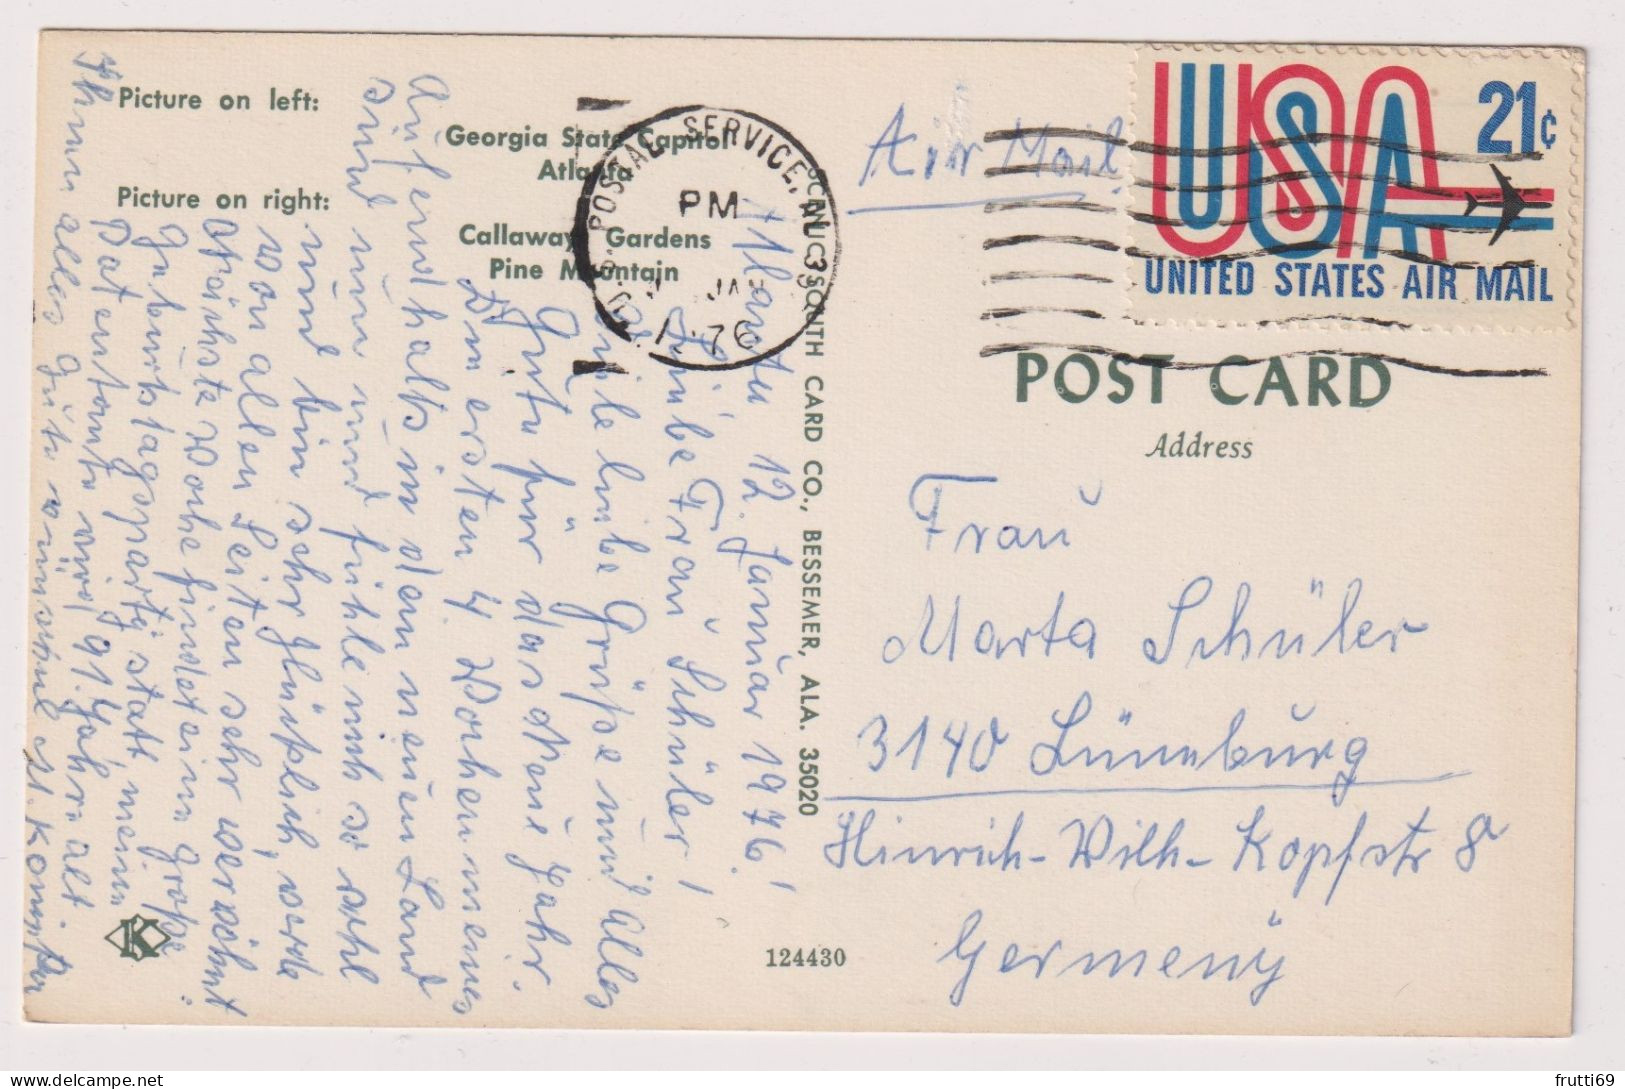 Picture on left:
Georgia State Capitol
Atlanta
Picture on right:
Callaway Gardens
Pine Mountain
U.S. POSTAL SERVICE,
PM
JAN
1976
OCEANIC SOUTH CARD CO., BESSEMER, ALA. 35020
124430
K
Air Mail
USA
21c
UNITED STATES AIR MAIL
POST CARD
Address
Frau
Marta Schüler
3140 Lüneburg
Hinrich-Wilh-Kopfstr 8
Germeny
Atlanta 12. Januar 1976!
Liebe Frau Schüler!
Viele liebe Grüße und alles
Gute für das neue Jahr.
Die ersten 4. Wochen meines
Aufenthalts in dem neuen Land
sind nun um und fühle mich so wohl
und bin sehr glücklich, werde
von allen Seiten sehr verwöhnt
nächste Woche findet eine große
Geburtstagsparty statt, meine
Patentante wird 91 Jahre alt.
Ihnen alles Gute wünschend